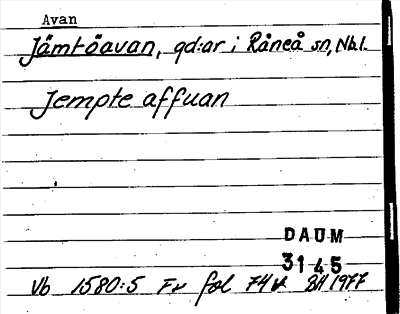 Avan
Jämtöavan, gd:ar i Råneå sn, Nbl.
Jempte affuan
DAUM
3145
Vb 1580:5 Fv fol 74v BH 1977